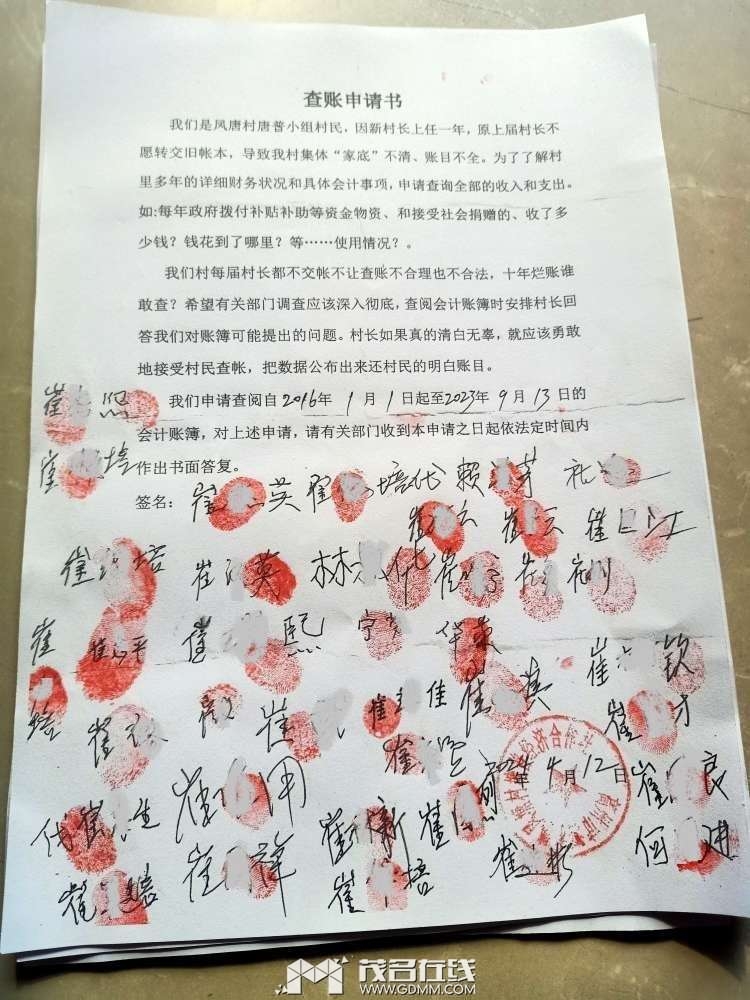 查账申请书
我们是凤唐村唐普小组村民，因新村长上任一年，原上届村长不
愿转交旧帐本，导致我村集体“家底”不清、账目不全。为了了解村
里多年的详细财务状况和具体会计事项，申请查询全部的收入和支出。
如:每年政府拨付补贴补助等资金物资、和接受社会捐赠的、收了多
少钱？钱花到了哪里？等……使用情况？。
我们村每届村长都不交帐不让查账不合理也不合法，十年烂账谁
敢查？希望有关部门调查应该深入彻底，查阅会计账簿时安排村长回
答我们对账簿可能提出的问题。村长如果真的清白无辜，就应该勇敢
地接受村民查帐，把数据公布出来还村民的明白账目。
我们申请查阅自2016年 1月1日起至2023年9月13日的
会计账簿，对上述申请，请有关部门收到本申请之日起依法定时间内
作出书面答复。
崔 熙
崔 培
签名： 崔 英 翟 培代 赖 芽
崔 云 崔 云 崔 江
崔 培 崔 英 林 化 崔 崔
崔 崔 平 崔 熙 宁 华 东 崔 钦
培 崔 崔 崔 佳 崔 其 崔 才
崔 坚 2024年4月12日
经济合作社
代崔 生 崔 用 崔 新 崔 崔 良
崔 崔 祥 崔 培 崔 彬 何 进
茂名在线
WWW.GDMM.COM